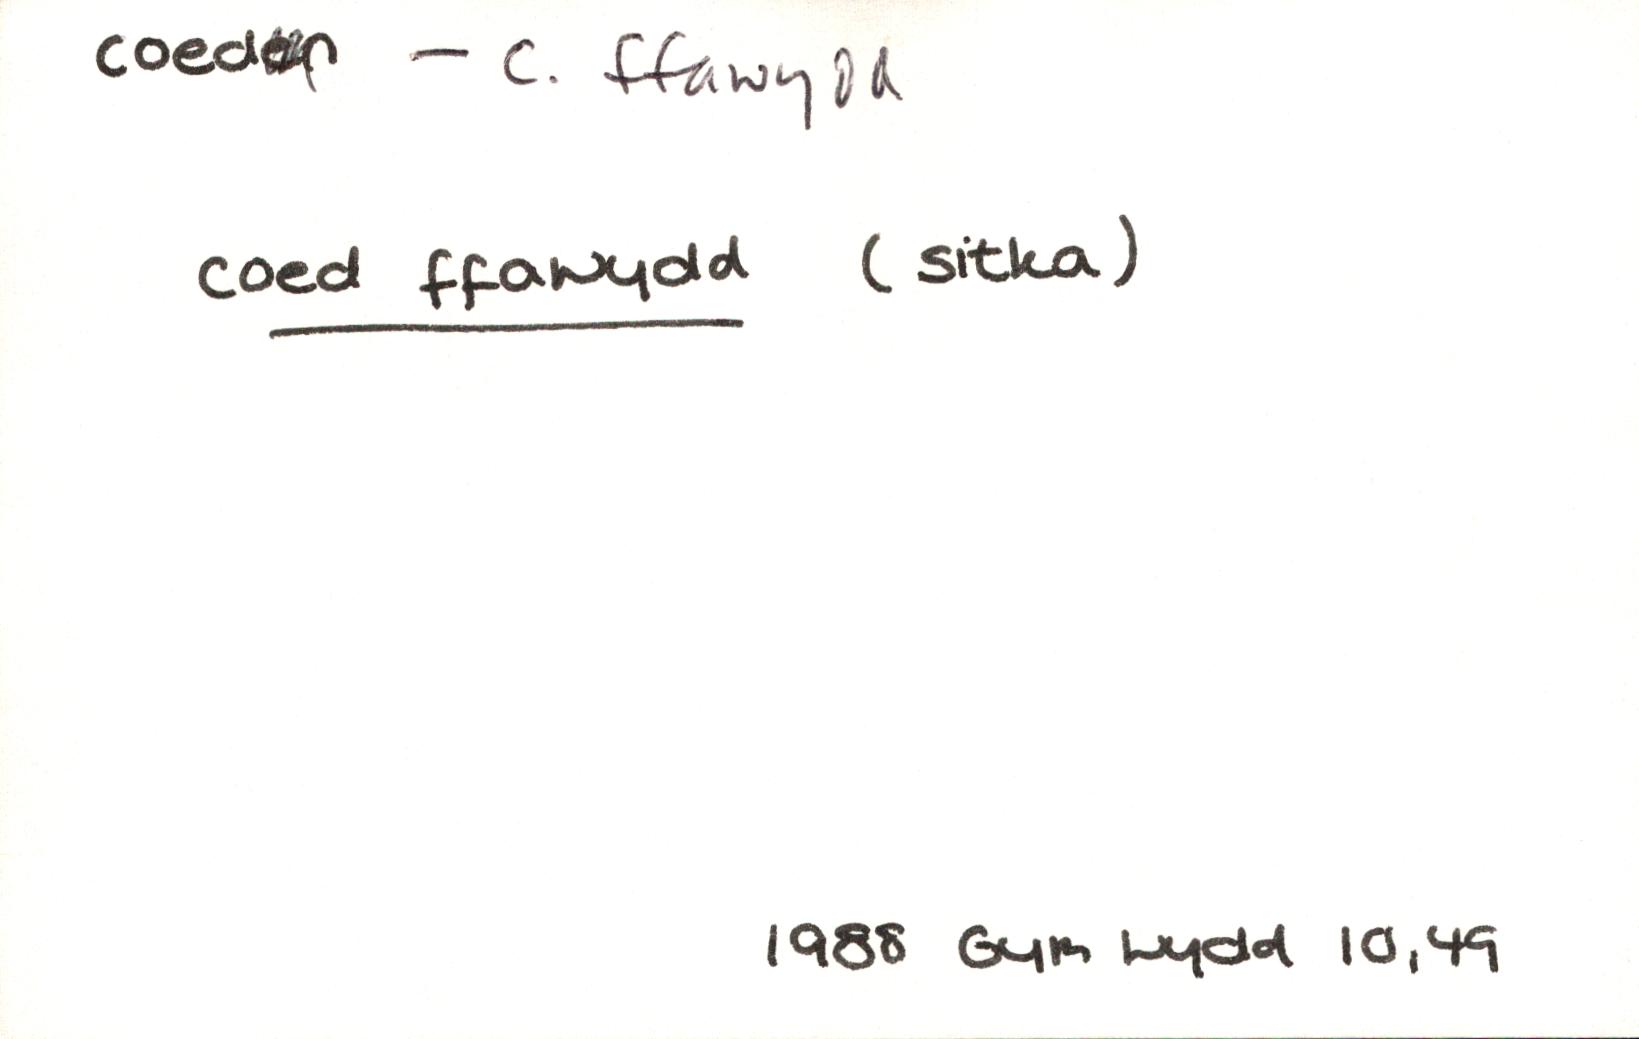 coeden – c. ffawydd
coed ffawydd (sitka)
1988 Gym Wydd 10, 49